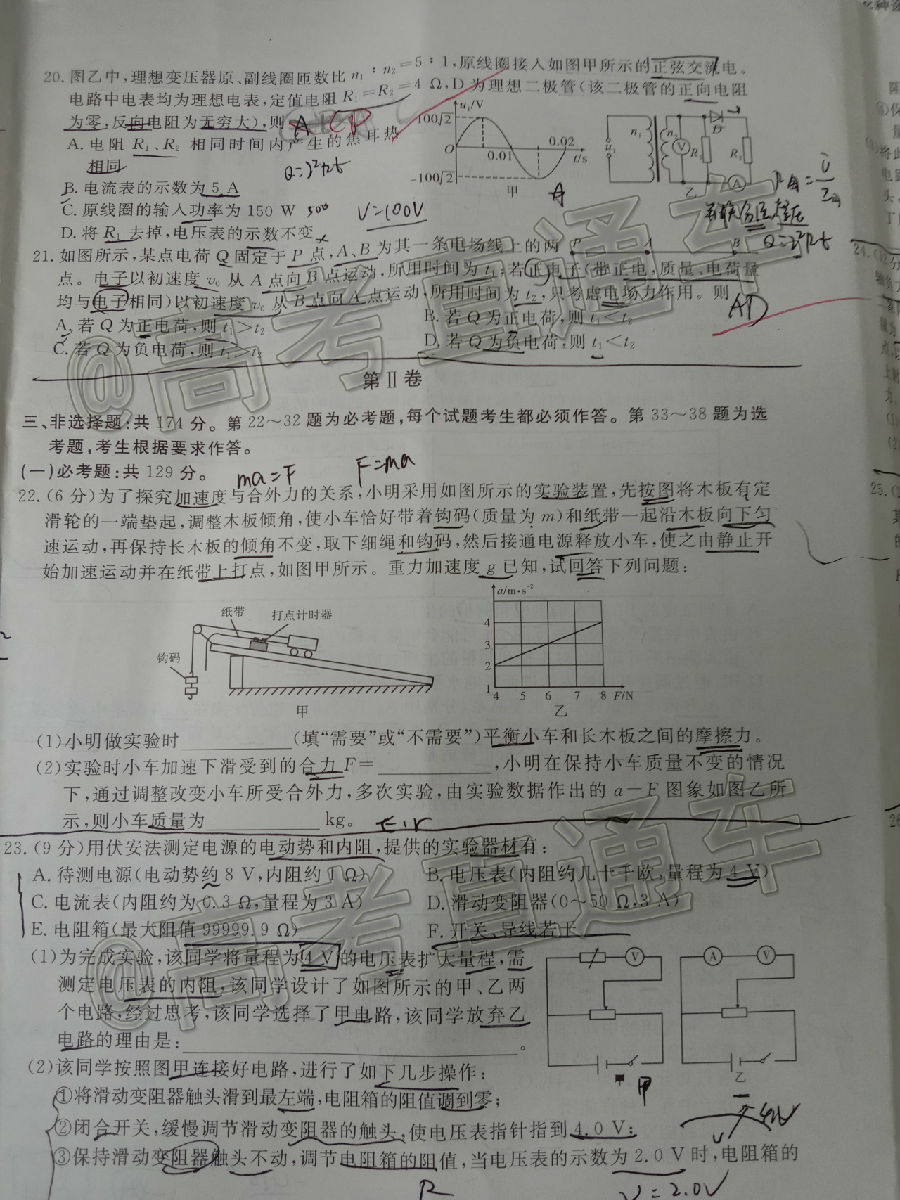 20. 图乙中,理想变压器原、副线圈匝数比 n₁ : n₂=5 : 1,原线圈接入如图甲所示的正弦交流电。
电路中电表均为理想电表,定值电阻 R₁=R₂=4 Ω,D 为理想二极管(该二极管的正向电阻
为零,反向电阻为无穷大),则
A. 电阻 R₁、R₂ 相同时间内产生的焦耳热
相同
B. 电流表的示数为 5 A
C. 原线圈的输入功率为 150 W
D. 将 R₁ 去掉,电压表的示数不变
u₁/V
100√2
O
0.01
0.02
t/s
-100√2
甲
n₁
n₂
V
D
R₁
A
乙
Q=I²Rt
U=100V
Q=I²Rt
21. 如图所示,某点电荷 Q 固定于 P 点,A、B 为其一条电场线上的两
点。电子以初速度 v₀ 从 A 点向 B 点运动,所用时间为 t₁;若正电子(带正电,质量、电荷量
均与电子相同)以初速度 v₀ 从 B 点向 A 点运动,所用时间为 t₂,只考虑电场力作用。则
P
A
B
AD
A. 若 Q 为正电荷,则 t₁>t₂
B. 若 Q 为正电荷,则 t₁<t₂
C. 若 Q 为负电荷,则 t₁>t₂
D. 若 Q 为负电荷,则 t₁<t₂
第Ⅱ卷
三、非选择题:共 174 分。第 22～32 题为必考题,每个试题考生都必须作答。第 33～38 题为选
考题,考生根据要求作答。
(一)必考题:共 129 分。
ma=F
F=ma
22. (6 分)为了探究加速度与合外力的关系,小明采用如图所示的实验装置,先按图将木板有定
滑轮的一端垫起,调整木板倾角,使小车恰好带着钩码(质量为 m)和纸带一起沿木板向下匀
速运动,再保持长木板的倾角不变,取下细绳和钩码,然后接通电源释放小车,使之由静止开
始加速运动并在纸带上打点,如图甲所示。重力加速度 g 已知,试回答下列问题:
纸带
打点计时器
钩码
甲
a/m·s⁻²
4
3
2
1
4 5 6 7 8 F/N
乙
(1)小明做实验时__________(填“需要”或“不需要”)平衡小车和长木板之间的摩擦力。
(2)实验时小车加速下滑受到的合力 F=__________,小明在保持小车质量不变的情况
下,通过调整改变小车所受合外力,多次实验,由实验数据作出的 a－F 图象如图乙所
示,则小车质量为__________kg。
E、r
23. (9 分)用伏安法测定电源的电动势和内阻,提供的实验器材有:
A. 待测电源(电动势约 8 V,内阻约 1 Ω)
B. 电压表(内阻约几十千欧,量程为 4 V)
C. 电流表(内阻约为 0.3 Ω,量程为 3 A)
D. 滑动变阻器(0～50 Ω,3 A)
E. 电阻箱(最大阻值 99999.9 Ω)
F. 开关、导线若干
(1)为完成实验,该同学将量程为 4 V 的电压表扩大量程,需
测定电压表的内阻,该同学设计了如图所示的甲、乙两
个电路,经过思考,该同学选择了甲电路,该同学放弃乙
电路的理由是:__________。
V
A
V
甲
乙
(2)该同学按照图甲连接好电路,进行了如下几步操作:
①将滑动变阻器触头滑到最左端,电阻箱的阻值调到零;
②闭合开关,缓慢调节滑动变阻器的触头,使电压表指针指到 4.0 V;
③保持滑动变阻器触头不动,调节电阻箱的阻值,当电压表的示数为 2.0 V 时,电阻箱的
R
V=2.0V
@高考直通车
@高考直通车